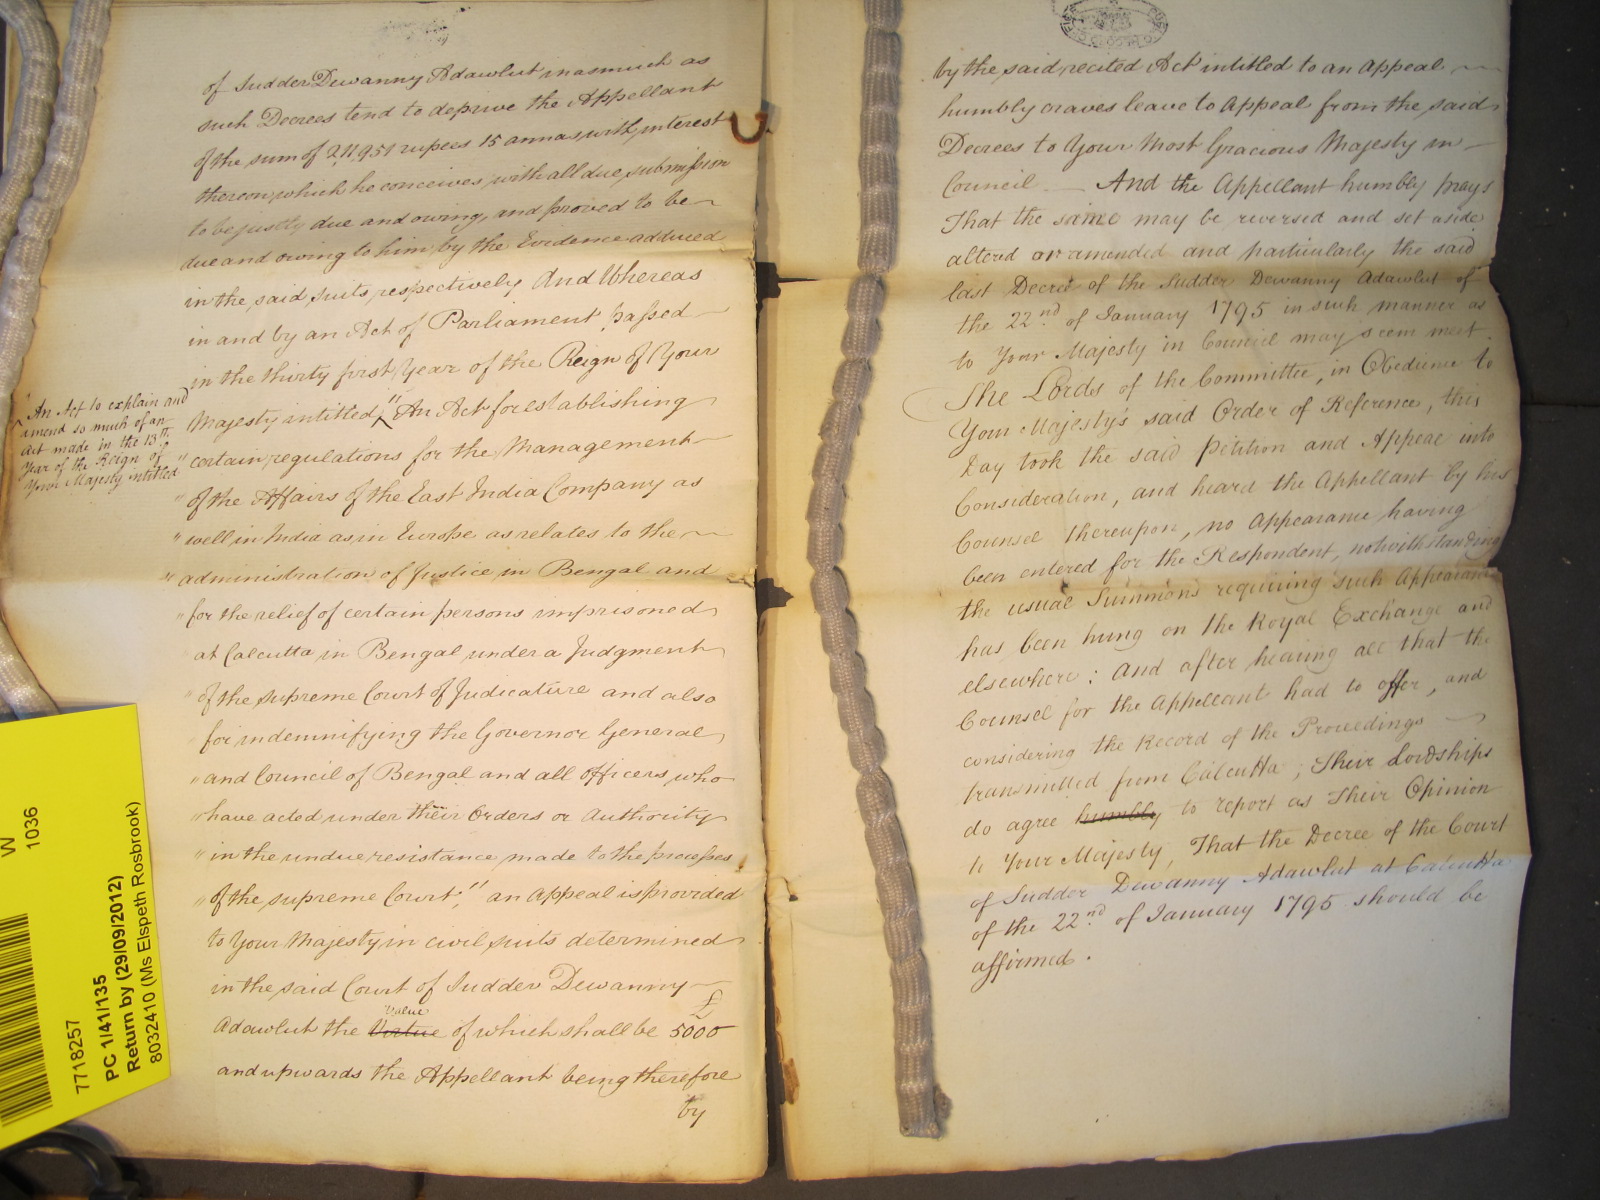 of Sudder Dewanny Adawlut inasmuch as
such Decrees tend to deprive the Appellant
of the sum of 2,11,951 rupees 15 annas with interest
thereon, which he conceives with all due submission
to be justly due and owing, and proved to be
due and owing to him by the Evidence adduced
in the said suits respectively And Whereas
in and by an Act of Parliament passed
in the thirty first Year of the Reign of Your
Majesty intitled "An Act for establishing
"An Act to explain and
amend so much of an
Act made in the 13th.
Year of the Reign of
Your Majesty intitled
"certain regulations for the Management
"of the Affairs of the East India Company as
"well in India as in Europe as relates to the
"administration of Justice in Bengal and
"for the relief of certain persons imprisoned
at Calcutta in Bengal under a Judgment
"of the supreme Court of Judicature and also
for indemnifying the Governor General
"and Council of Bengal and all officers who
"have acted under their Orders or Authority
"in the undue resistance made to the processes
"of the supreme Court," an Appeal is provided
to Your Majesty in civil suits determined
in the said Court of Sudder Dewanny
Adawlut the Virtue Value of which shall be £5000
and upwards the Appellant being therefore
by
by the said recited Act intitled to an Appeal
humbly craves leave to Appeal from the said
Decrees to Your Most Gracious Majesty in
Council And the Appellant humbly prays
That the same may be reversed and set aside
altered or amended and particularly the said
last Decree of the Sudder Dewanny Adawlut of
the 22nd. of January 1795 in such manner as
to Your Majesty in Council may seem meet
The Lords of the Committee, in Obedience to
Your Majesty's said Order of Reference, this
Day took the said Petition and Appeal into
Consideration, and heard the Appellant by his
Counsel thereupon, no Appearance having
been entered for the Respondent, notwithstanding
the usual Summons requiring such Appearance
has been hung on the Royal Exchange and
elsewhere: And after hearing all that the
Counsel for the Appellant had to offer, and
considering the Record of the Proceedings
transmitted from Calcutta; Their Lordships
do agree humbly to report as Their Opinion
to Your Majesty, That the Decree of the Court
of Sudder Dewanny Adawlut at Calcutta
of the 22nd. of January 1795 should be
affirmed.
W
1036
7718257
PC 1/41/135
Return by (29/09/2012)
8032410 (Ms Elspeth Rosbrook)